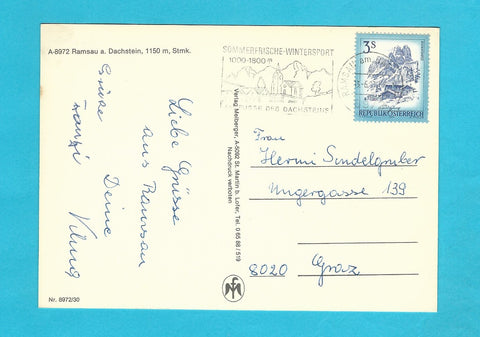 A-8972 Ramsau a. Dachstein, 1150 m, Stmk.
SOMMERFRISCHE-WINTERSPORT
1000-1800 m
AM FUSSE DES DACHSTEINS
3 S
REPUBLIK ÖSTERREICH
Liebe Grüsse
aus Ramsau
Deine
Verlag Meiberger, A-5092 St. Martin b. Lofer, Tel. 0 65 88 / 519
Nachdruck verboten
Frau
Hermi Sindelgruber
Ungergasse 139
8020 Graz
Nr. 8972/30